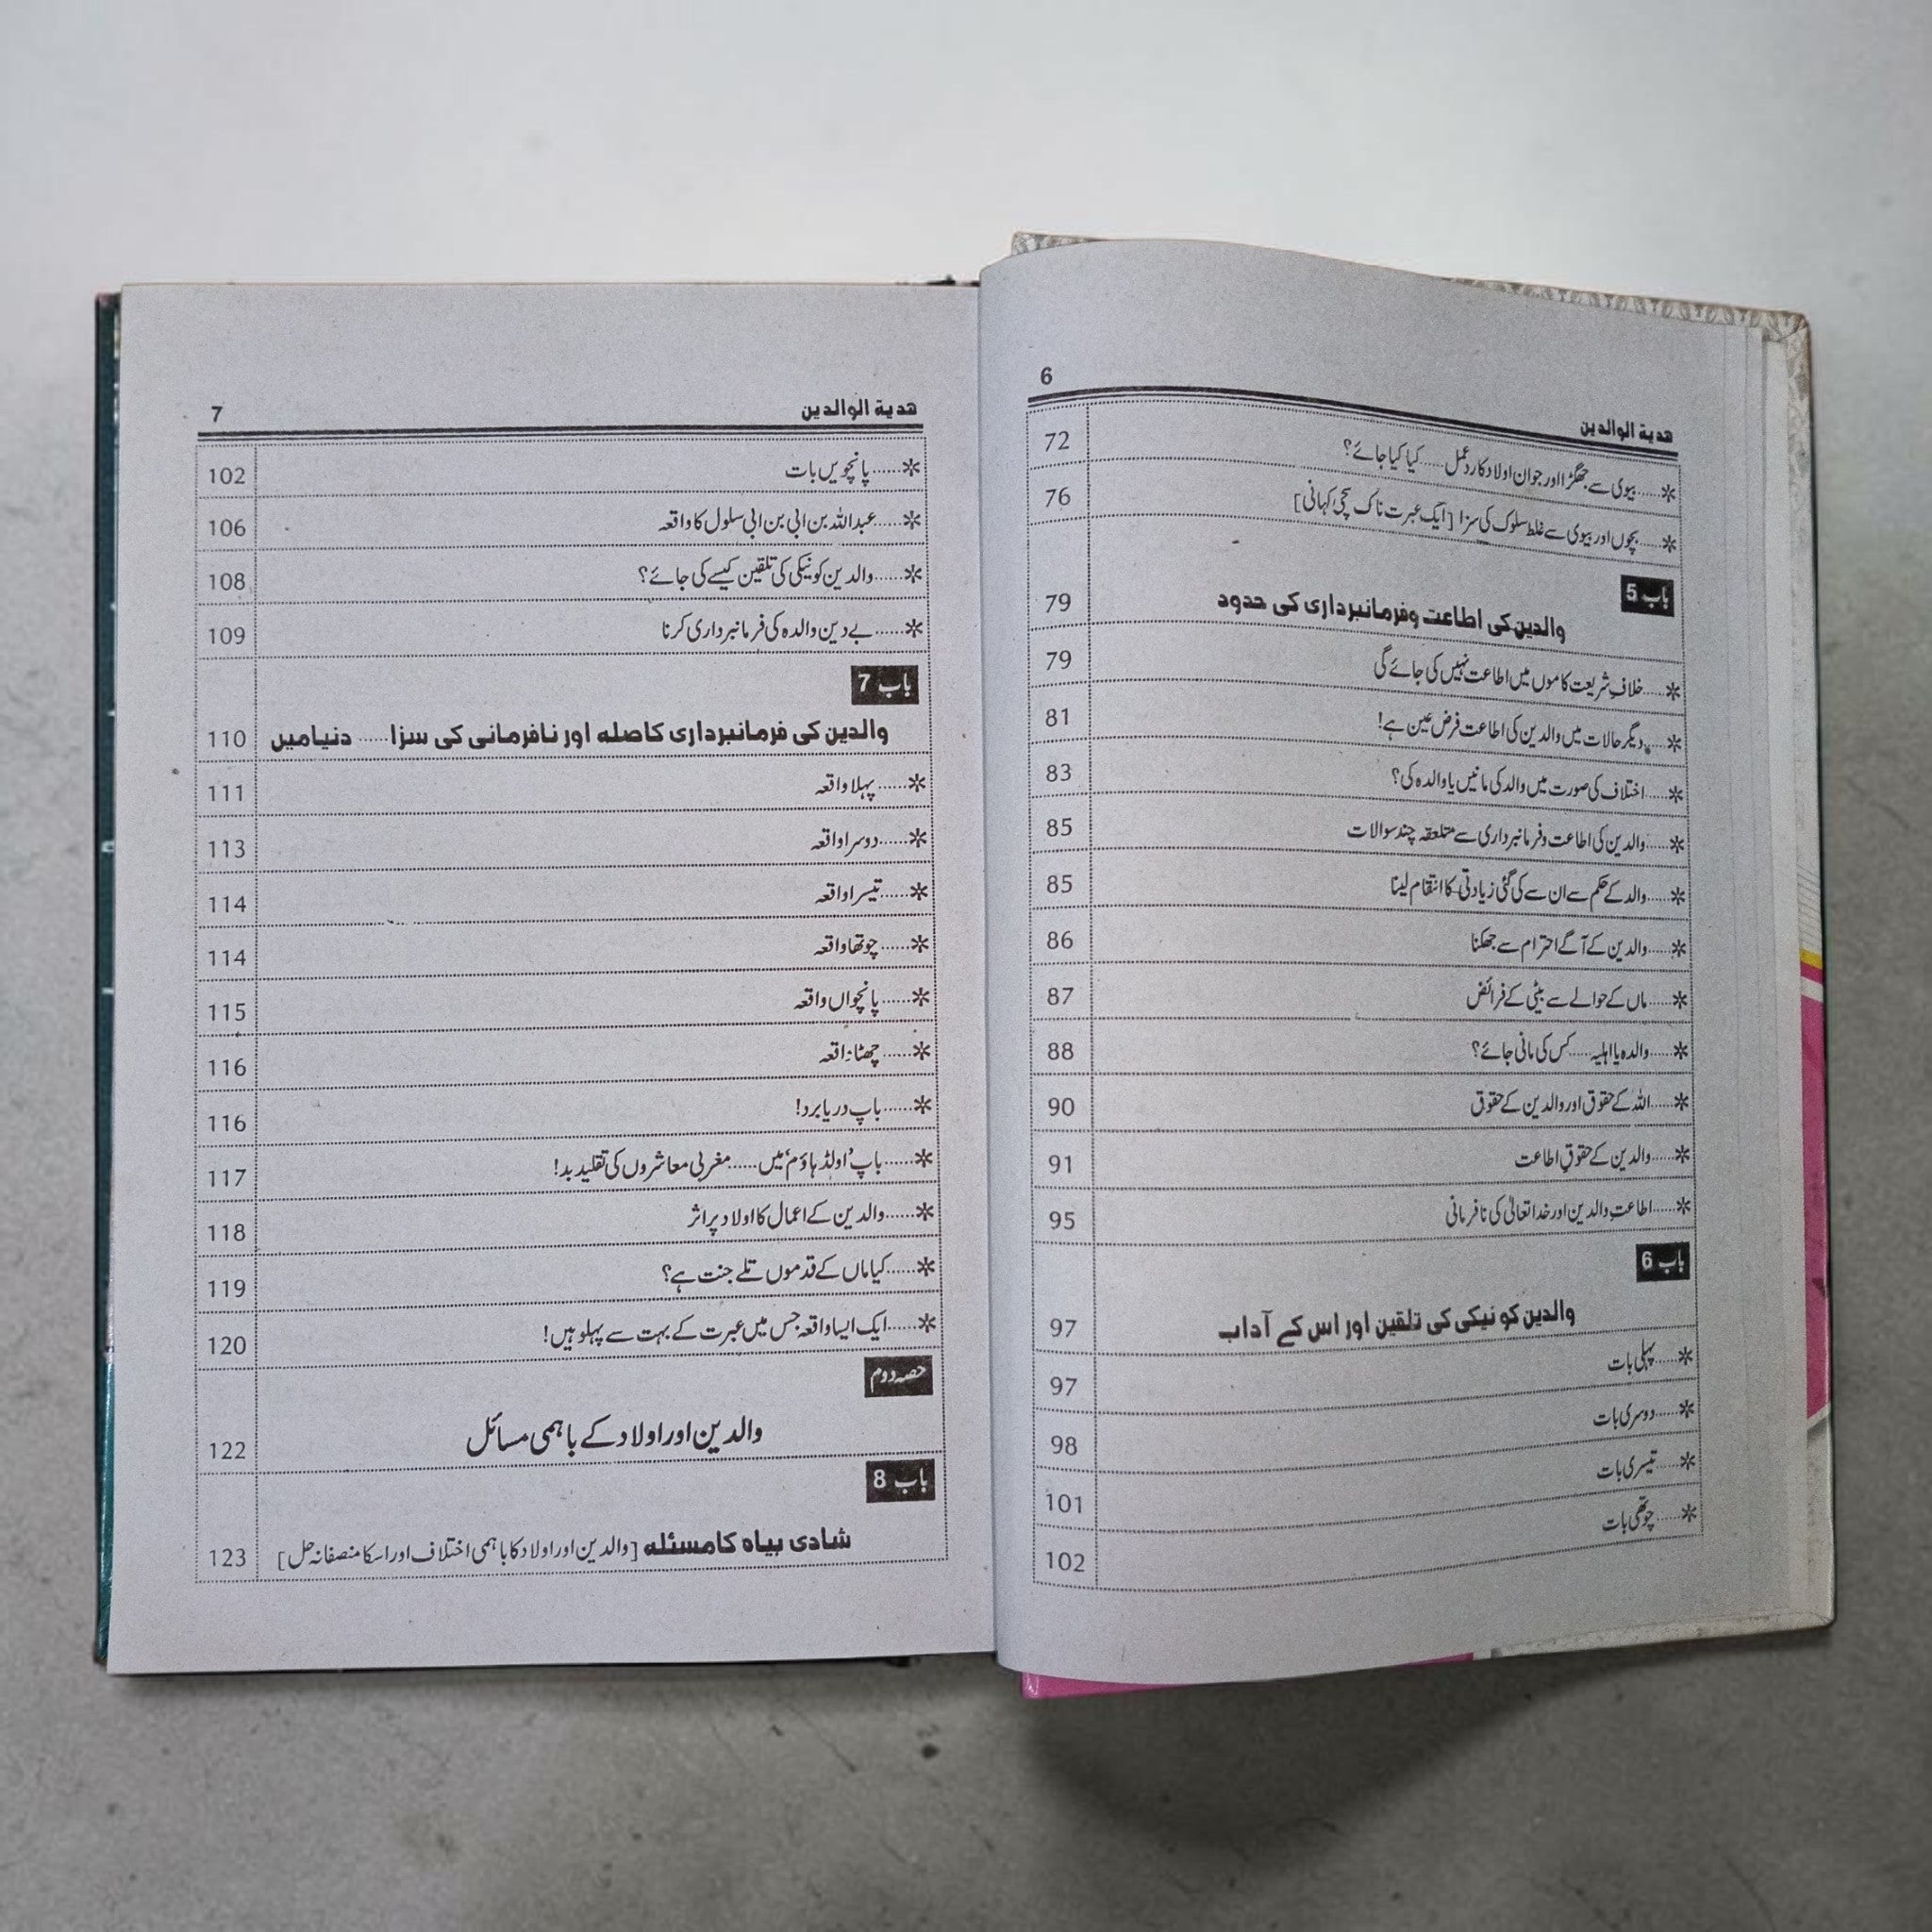 6
هدية الوالدين
✲......بیوی سے جھگڑا اور جوان اولاد کا ردعمل ..... کیا کیا جائے؟ 72
✲......بچوں اور بیوی سے غلط سلوک کی سزا [ایک عبرت ناک سچی کہانی] 76
باب 5
والدین کی اطاعت وفرمانبرداری کی حدود 79
✲......خلافِ شریعت کاموں میں اطاعت نہیں کی جائے گی 79
✲......دیگر حالات میں والدین کی اطاعت فرض عین ہے! 81
✲......اختلاف کی صورت میں والد کی مانیں یا والدہ کی؟ 83
✲......والدین کی اطاعت وفرمانبرداری سے متعلقہ چند سوالات 85
✲......والد کے حکم سے ان سے کی گئی زیادتی کا انتقام لینا 85
✲......والدین کے آگے احترام سے جھکنا 86
✲......ماں کے حوالے سے بیٹی کے فرائض 87
✲......والدہ یا اہلیہ ..... کس کی مانی جائے؟ 88
✲......اللہ کے حقوق اور والدین کے حقوق 90
✲......والدین کے حقوقِ اطاعت 91
✲......اطاعتِ والدین اور خدا تعالیٰ کی نافرمانی 95
باب 6
والدین کو نیکی کی تلقین اور اس کے آداب 97
✲......پہلی بات 97
✲......دوسری بات 98
✲......تیسری بات 101
✲......چوتھی بات 102
7
هدية الوالدين
✲......پانچویں بات 102
✲......عبداللہ بن ابی بن ابی سلول کا واقعہ 106
✲......والدین کو نیکی کی تلقین کیسے کی جائے؟ 108
✲......بے دین والدہ کی فرمانبرداری کرنا 109
باب 7
والدین کی فرمانبرداری کا صلہ اور نافرمانی کی سزا ..... دنیا میں 110
✲......پہلا واقعہ 111
✲......دوسرا واقعہ 113
✲......تیسرا واقعہ 114
✲......چوتھا واقعہ 114
✲......پانچواں واقعہ 115
✲......چھٹا واقعہ 116
✲......باپ دریا برد! 116
✲......باپ 'اولڈ ہاؤم' میں ...... مغربی معاشروں کی تقلید بد! 117
✲......والدین کے اعمال کا اولاد پر اثر 118
✲......کیا ماں کے قدموں تلے جنت ہے؟ 119
✲......ایک ایسا واقعہ جس میں عبرت کے بہت سے پہلو ہیں! 120
حصہ دوم
والدین اور اولاد کے باہمی مسائل 122
باب 8
شادی بیاہ کا مسئلہ [والدین اور اولاد کا باہمی اختلاف اور اسکا منصفانہ حل] 123